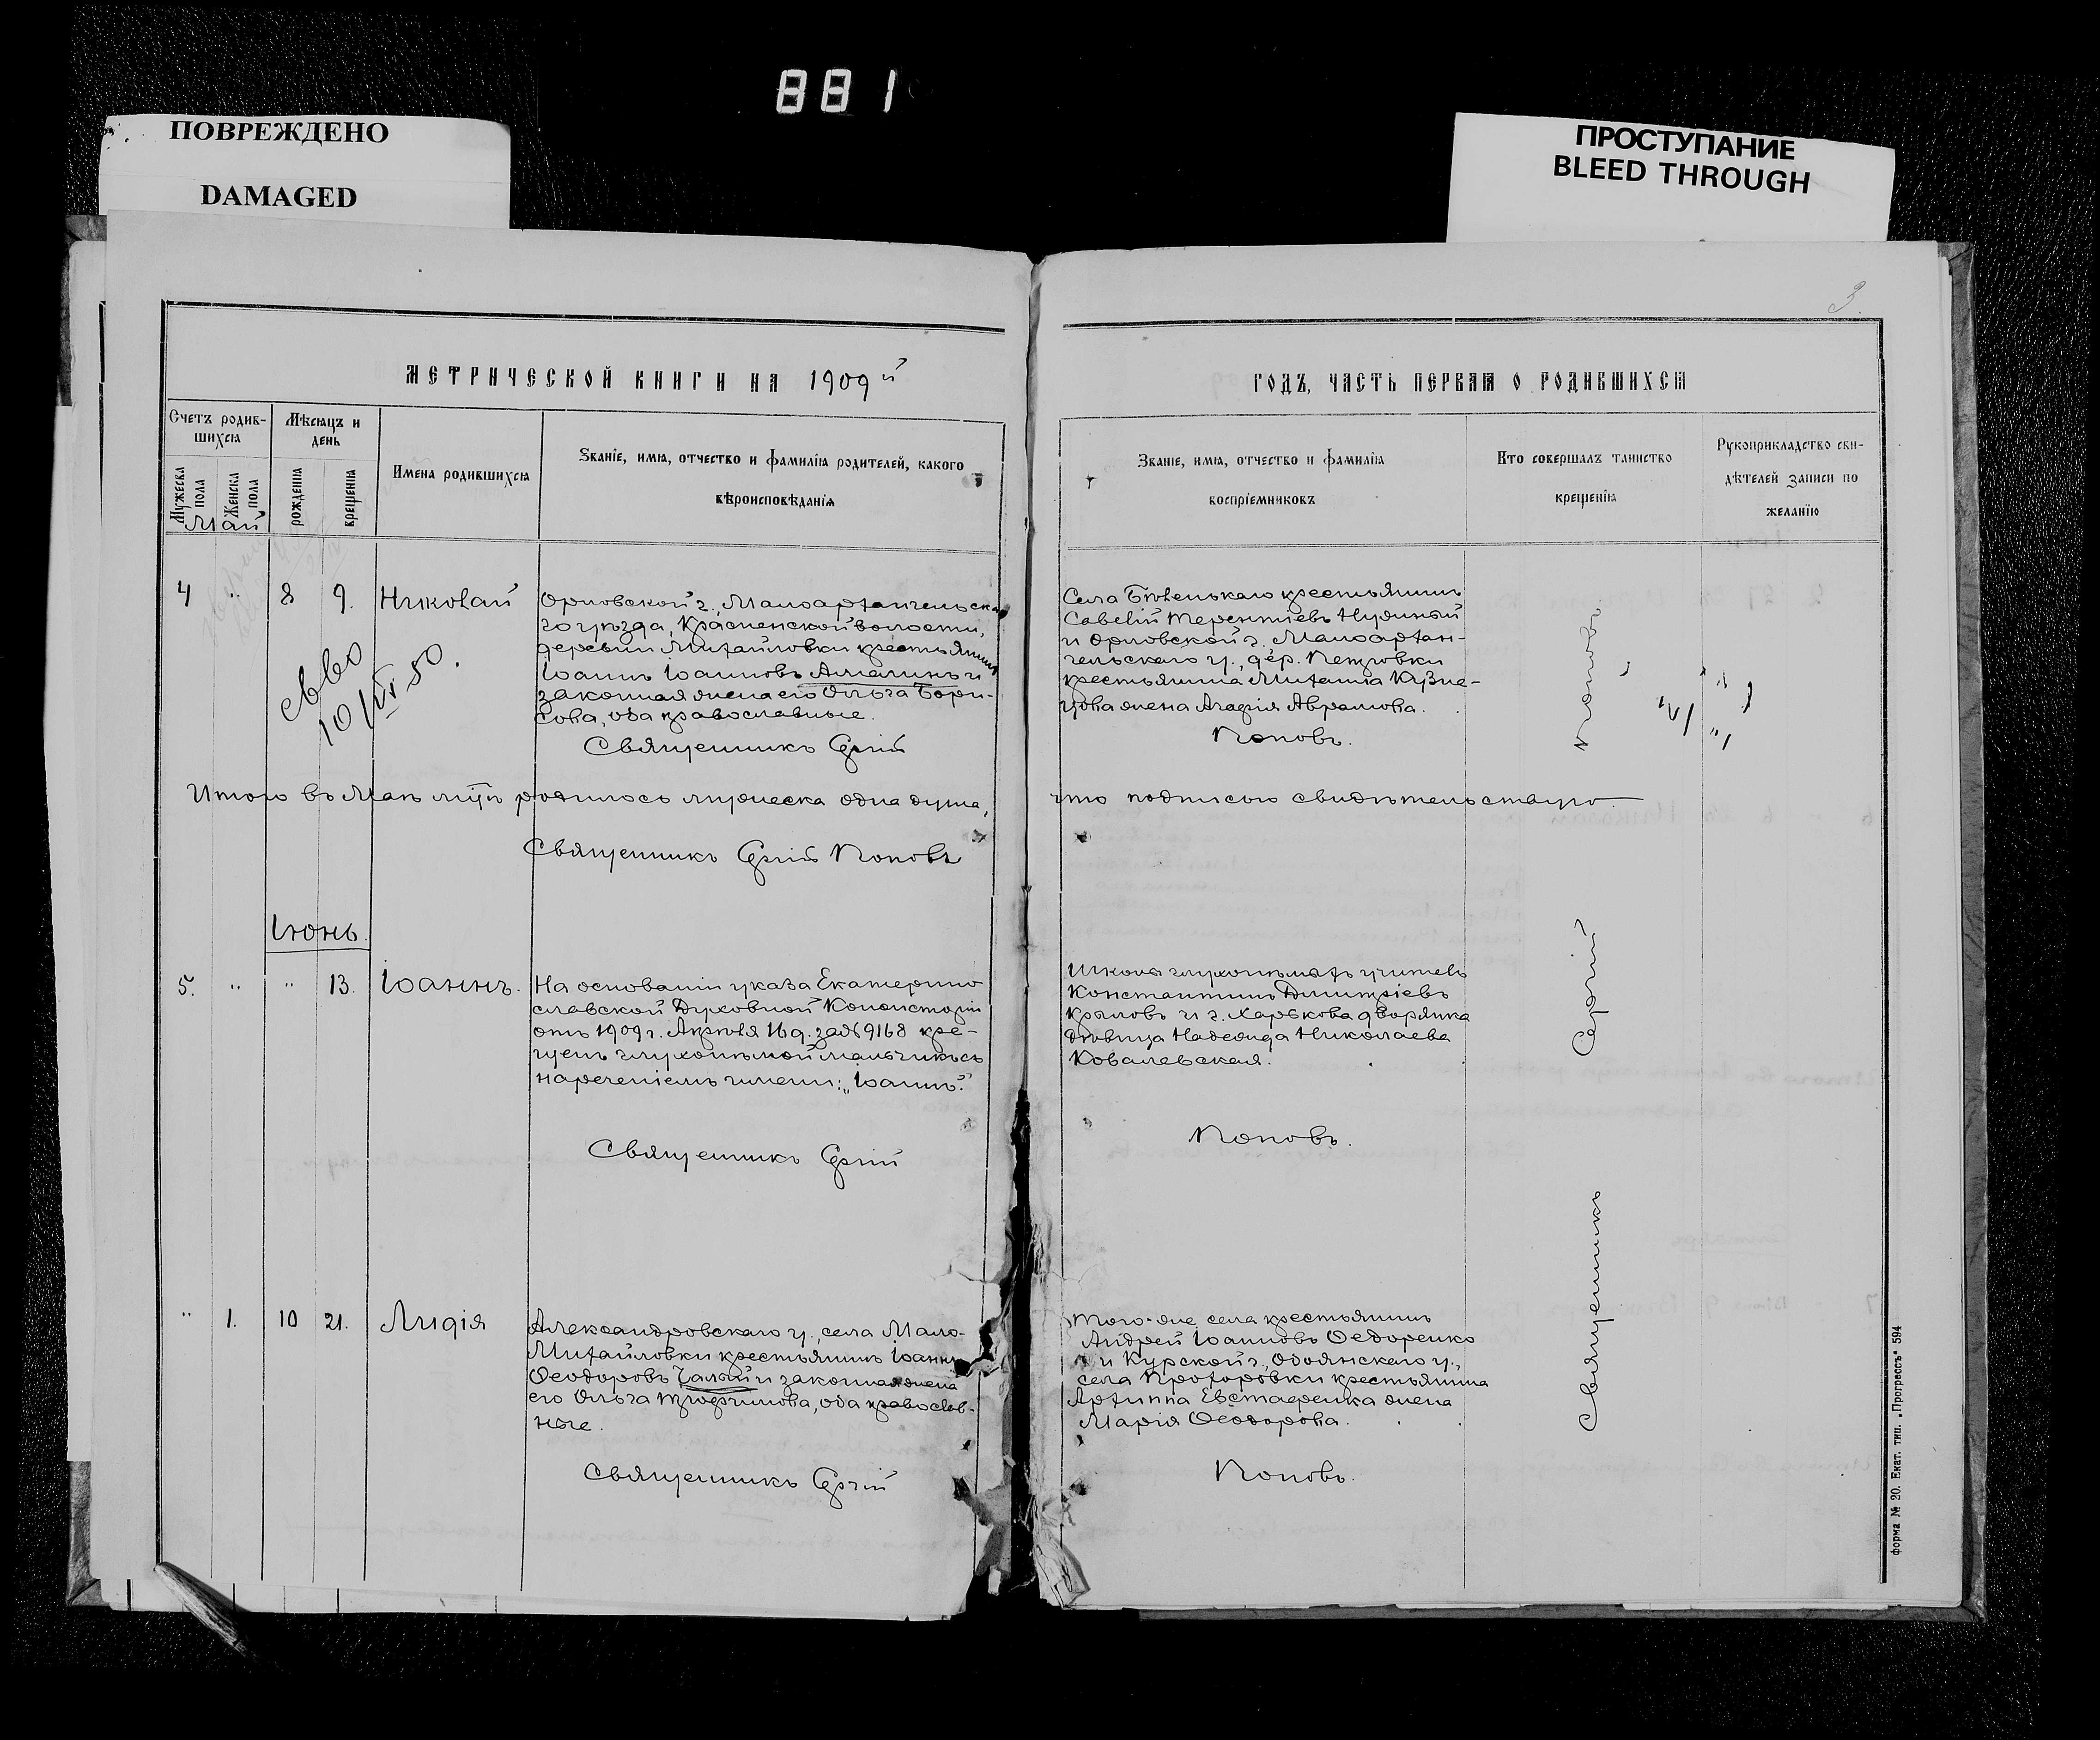 881
ПОВРЕЖДЕНО
DAMAGED
ПРОСТУПАНИЕ
BLEED THROUGH
3
МЕТРИЧЕСКОЙ КНИГИ НА 1909й
Счетъ родив-
шихся
Мѣсяцъ и
день
Мужеска пола
Женска пола
рожденія
крещенія
Имена родившихся
Званіе, имя, отчество и фамилія родителей, какого
вѣроисповѣданія
Май
4 " 8 9. Николай
Орловской г., Малоархангельска
го уѣзда, Красненской волости,
деревни Михайловки крестьянинъ
Іоаннъ Іоанновъ Амелинъ и
законная жена его Ольга Бори-
сова, оба православные.
Священникъ Сергій
10/VI-50.
Итого въ Маѣ м-цѣ родилось мужеска одна душа,
Священникъ Сергій Поповъ
Іюнь.
5. " " 13. Іоаннъ.
На основаніи указа Екатерино
славской Духовной Консисторіи
отъ 1909 г. Апрѣля 16 д. за № 9168 кре-
щенъ глухонѣмой мальчикъ съ
нареченіемъ имени: „Іоаннъ".
Священникъ Сергій
" 1. 10 21. Лидія
Александровскаго у., села Мало-
Михайловки крестьянинъ Іоаннъ
Ѳеодоровъ Чалый и законная жена
его Ольга Трофимова, оба православ-
ные.
Священникъ Сергій
ГОДЪ, ЧАСТЬ ПЕРВАЯ О РОДИВШИХСЯ
Званіе, имя, отчество и фамилія
воспріемниковъ
Кто совершалъ таинство
крещенія
Рукоприкладство сви-
дѣтелей записи по
желанію
Села Бѣленькаго крестьянинъ
Савелій Терентіевъ Нужный
и Орловской г., Малоархан-
гельскаго у., дер. Петровки
крестьянина Михаила Кузне-
цова жена Агафія Аврамова.
Поповъ.
что подписью свидѣтельствую.
Школы глухонѣмыхъ учитель
Константинъ Дмитріевъ
Крыловъ и г. Харькова дворянка
дѣвица Надежда Николаева
Ковалевская.
Поповъ.
Того-же села крестьянинъ
Андрей Іоанновъ Ѳедоренко
и Курской г., Обоянскаго у.,
села Прохоровки крестьянина
жена
Марія Ѳеодорова.
Поповъ.
Священникъ Сергій Поповъ
Форма № 20. Екат. тип. „Прогрессъ" 594